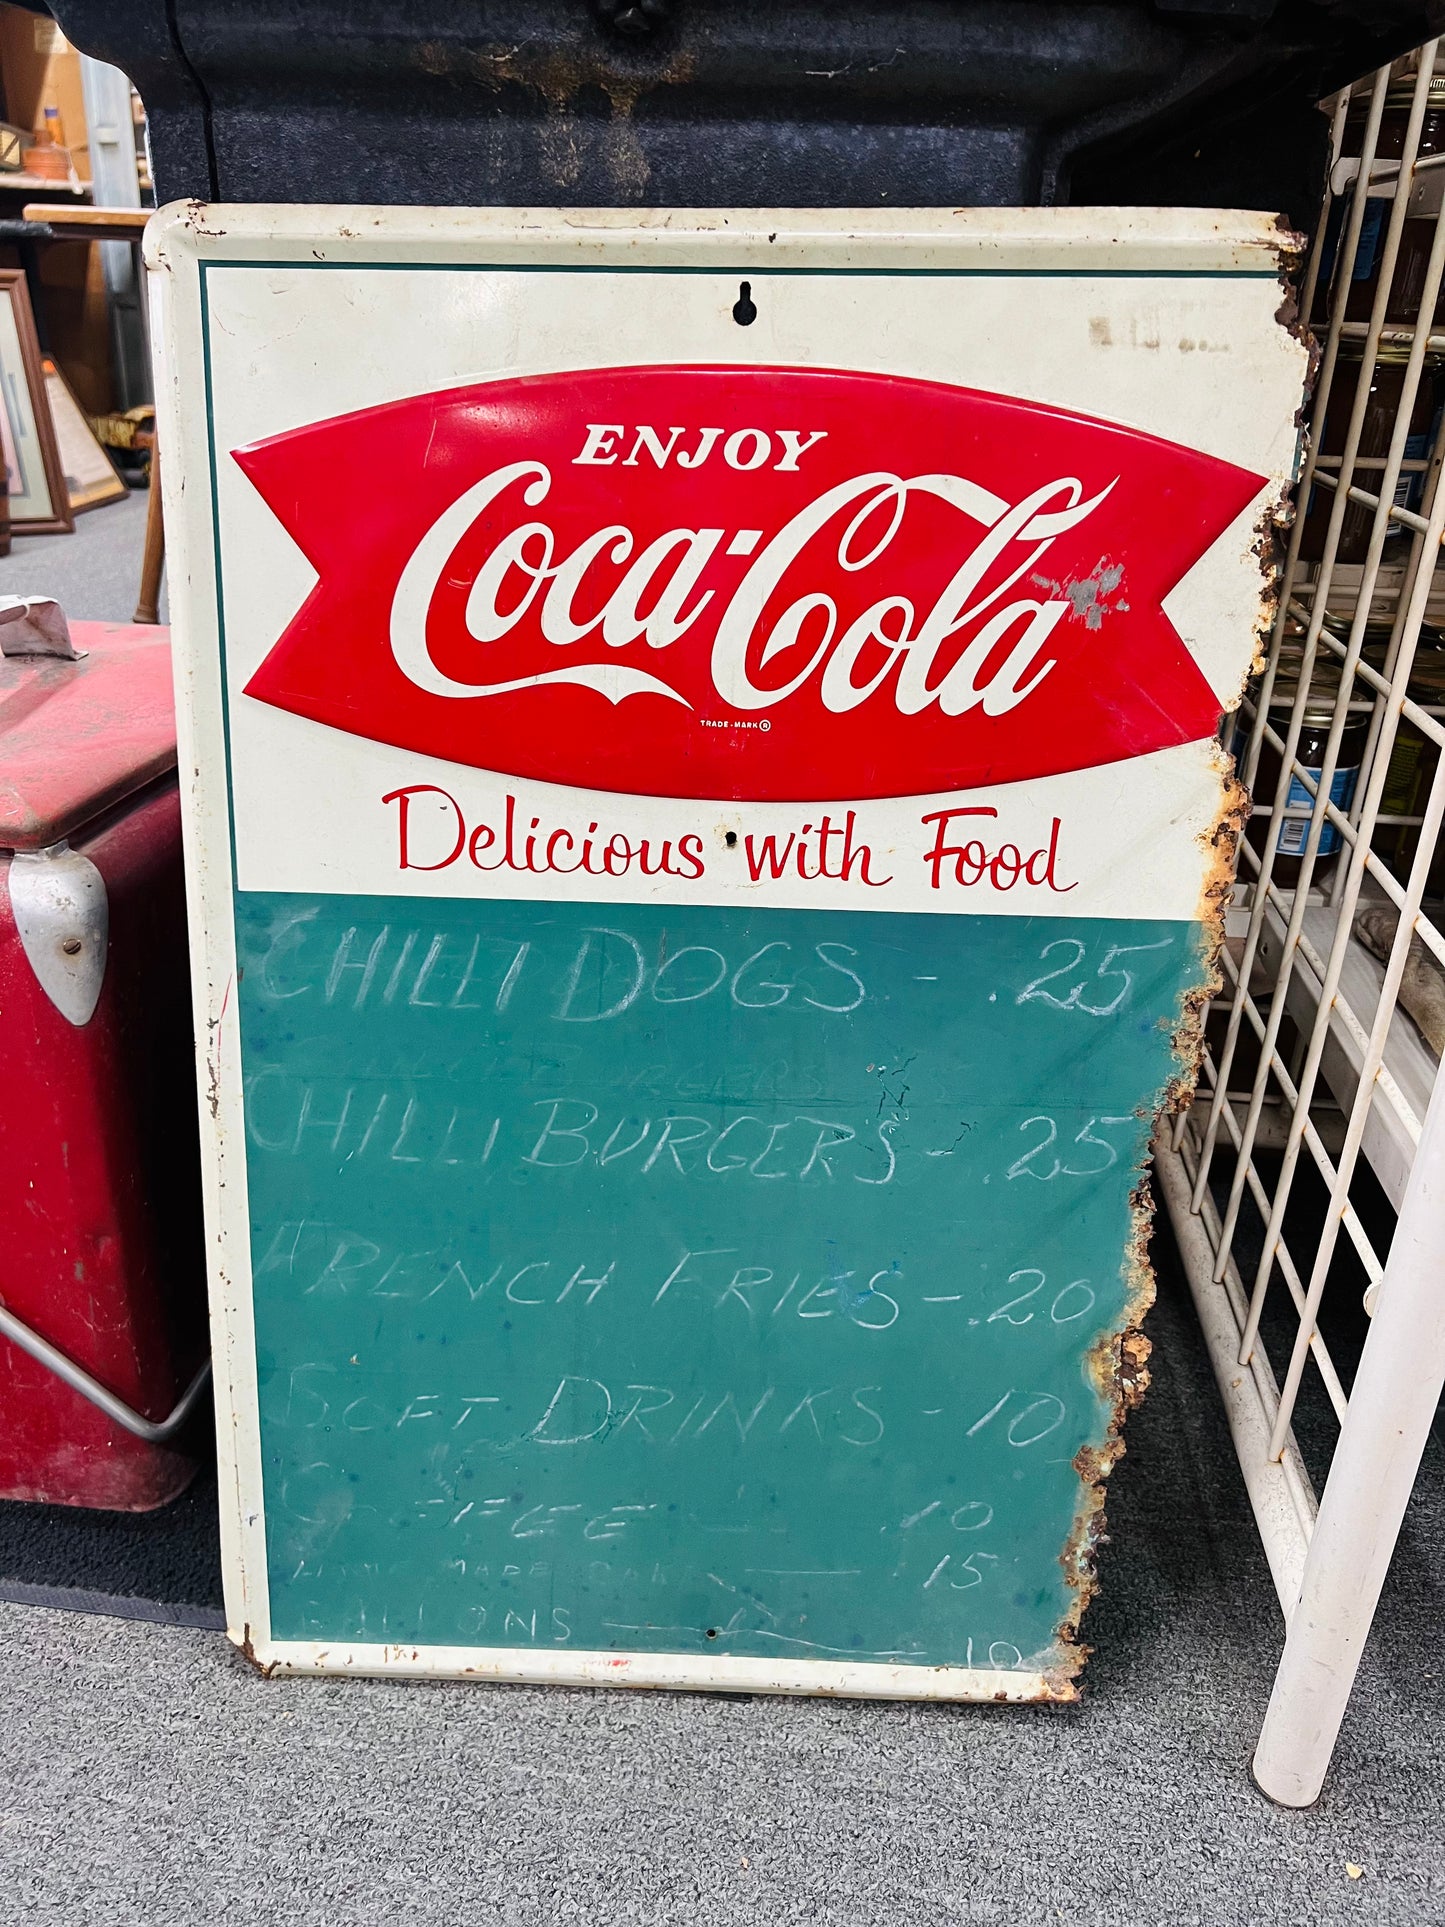 ENJOY
Coca-Cola
TRADE-MARK ®
Delicious with Food
CHILLI DOGS - .25
CHILLI BURGERS - .25
FRENCH FRIES - .20
SOFT DRINKS - 10
COFFEE - .10
MADE 15
BALLOONS — 10